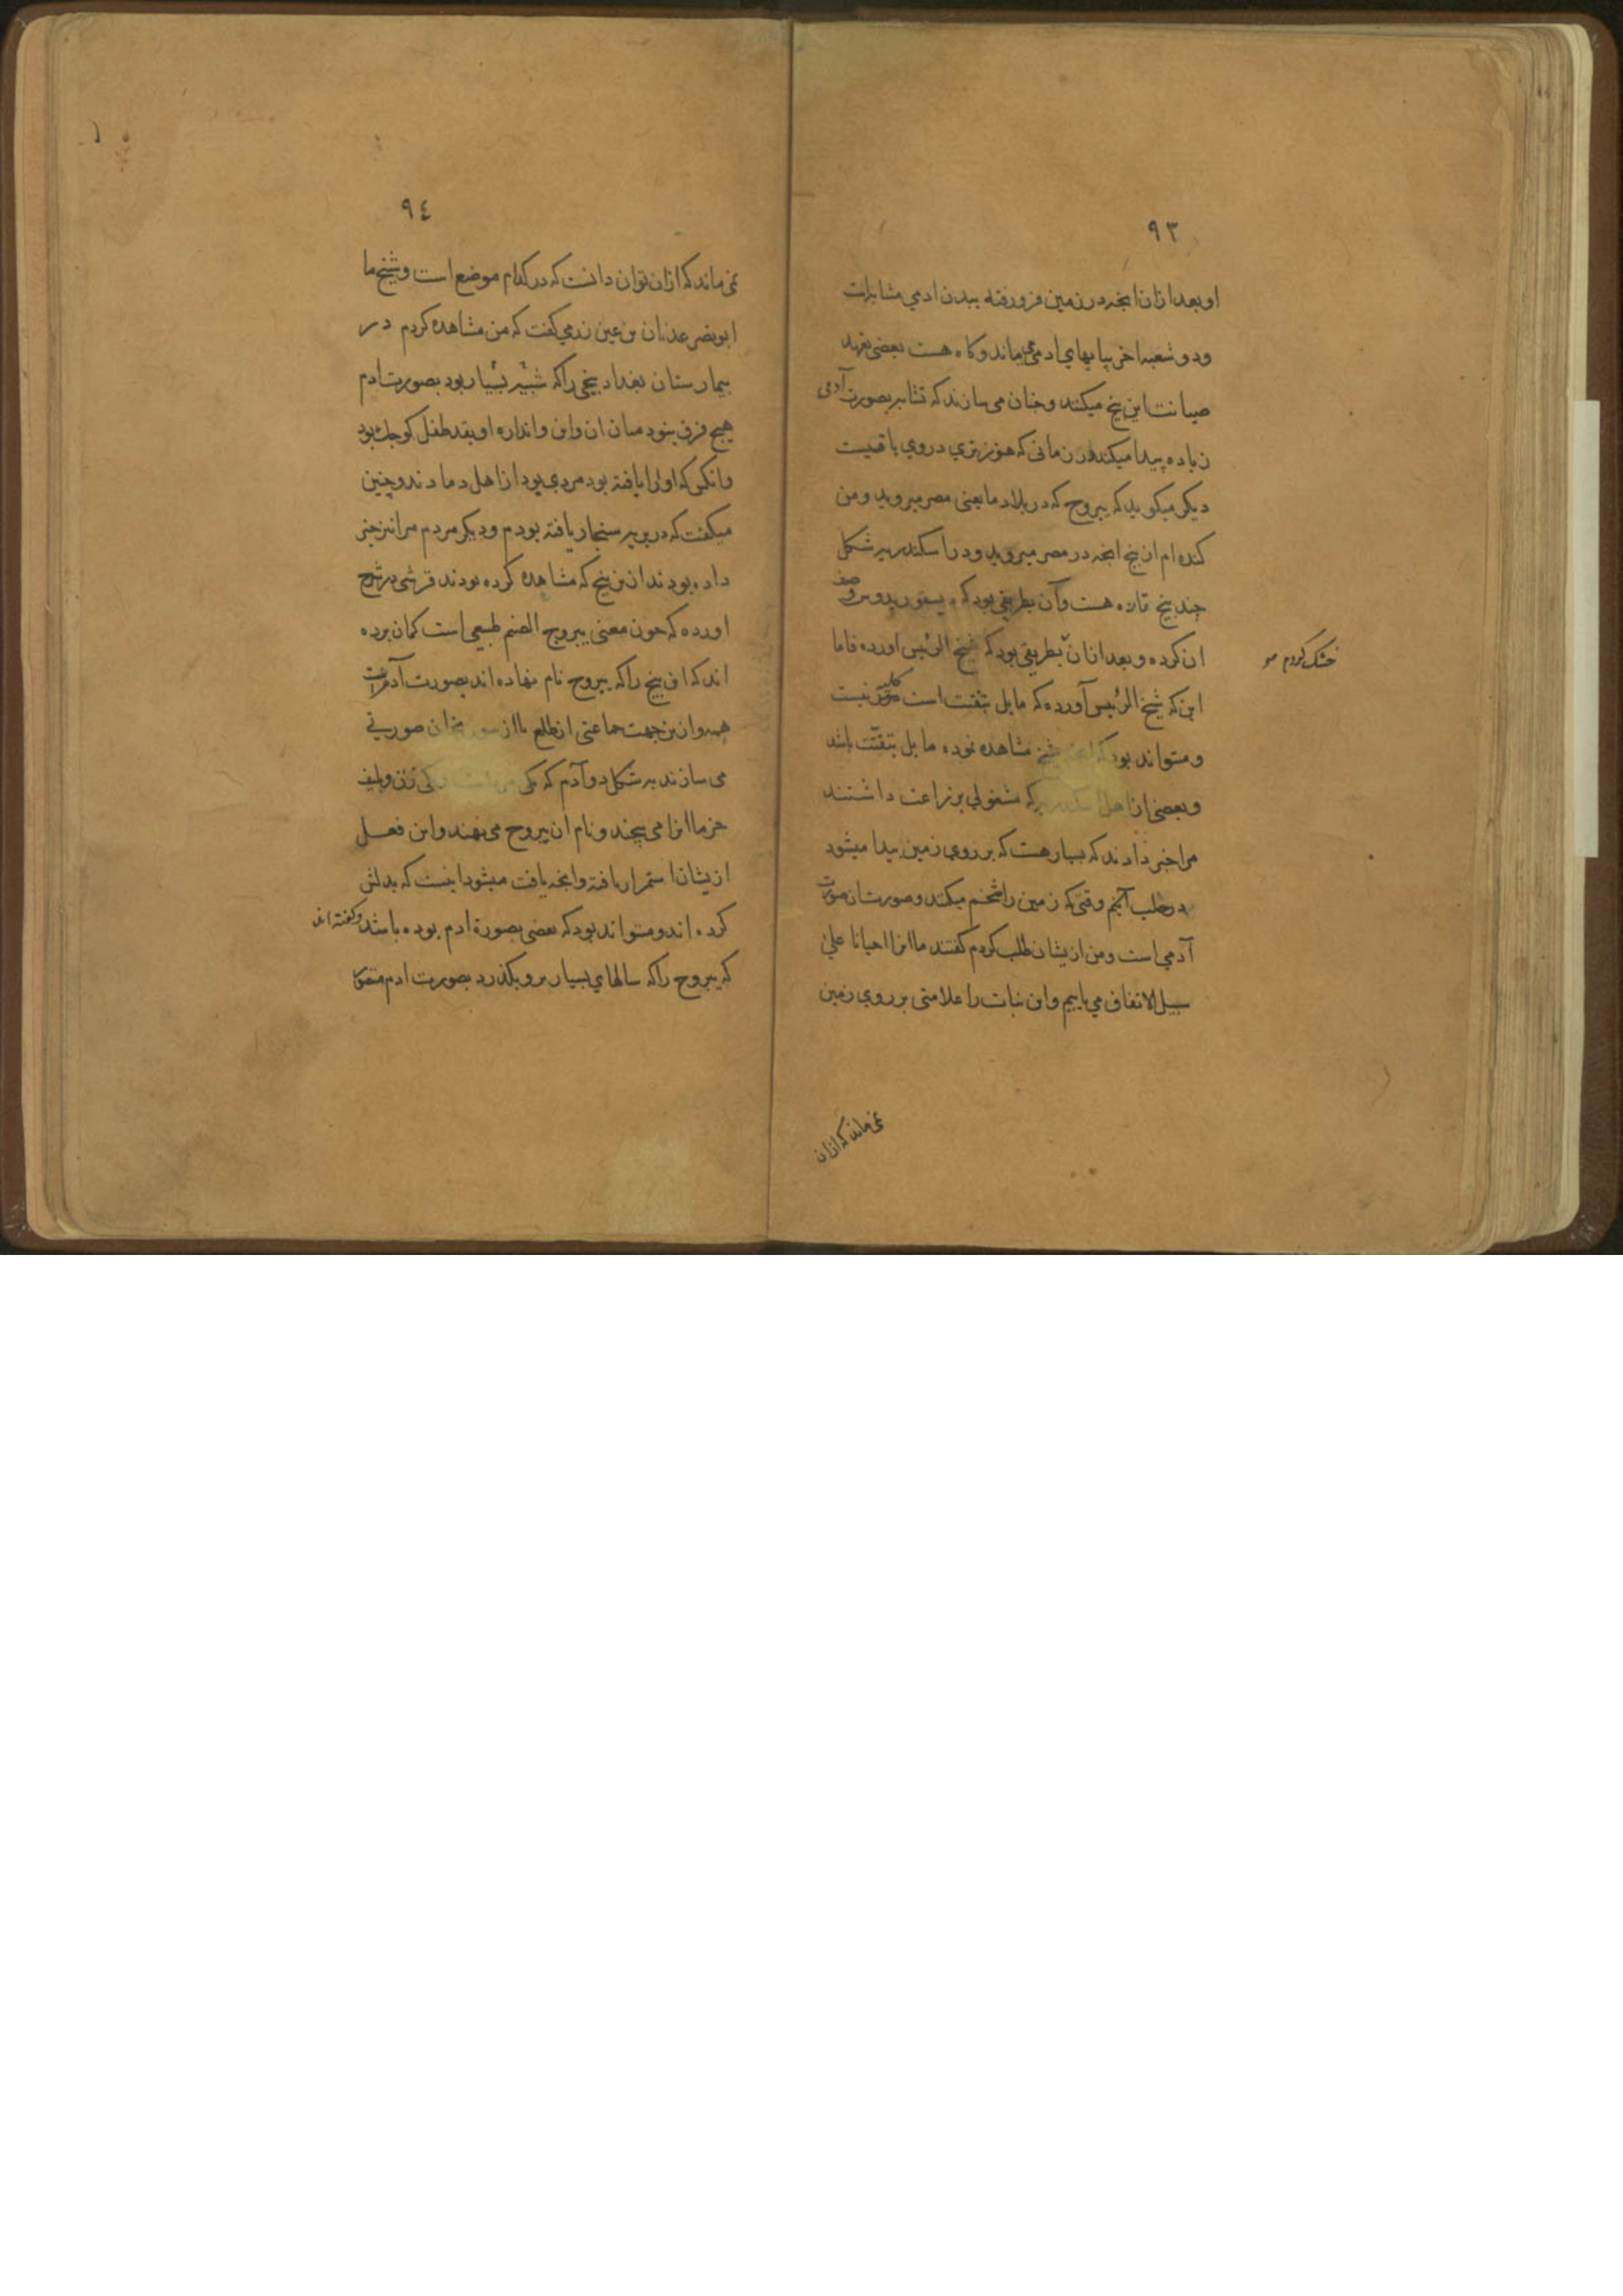 ٩٣
او بعد ازان انچه در زمین فرو رفته ببدن ادمي مشابهت
ودو شعبه اخر بپایهاي ادمي میماند وکاه هست بعضی تعهد
صیانت این بیخ میکنند وچنان می سازند که تشابه بصورت آدمی
زیاده پیدا میکند در زمانی که هنوز تري در وي باقیست
دیکر میکوید که یبروح که در بلاد ما یعنی مصر میروید ومن
کنده ام ان بیخ انچه در مصر میروید ودر اسکندریه شکل
چند بیخ تازه هست وآن بطریقی بود که دیسقوریدوس وصف
ان کرده وبعد ازان بطریقی بود که شیخ الرئیس اورده فاما
خشک کردم
این که شیخ الرئیس آورده که مایل بتفتت است کلی نیست
ومیتواند بود که انچه شیخ مشاهده نموده مایل بتفتت باشد
وبعضی از اهل اسکندریه که مشغولی بزراعت داشتند
مرا خبر دادند که بسیار هست که بر روی زمین پیدا میشود
در طلب آنچم وقتی که زمین را شخم میکنند وصورت ان صورت
آدمي است ومن ازیشان طلب کردم کفتند ما انرا احیانا علی
سبیل الاتفاق مي یابیم واین نبات را علامتی بر روي زمین
نمی ماند که ازان
٩٤
نمی ماند که ازان توان دانست که در کدام موضع است وشیخ ما
ابونصر عدنان بن عین زربي کفت که من مشاهده کردم در
بیمارستان بغداد بیخی را که شبیه بسیار بود بصورت ادم
هیچ فرق نبود میان ان واین واندازه او بقد طفل کوچک بود
وانکس که او را یافته بود مردی بود از اهل دماوند وچنین
میکفت که در بریه سنجار یافته بودم ودیکر مردم مرا نیز خبر
داده بودند ازین بیخ که مشاهده کرده بودند قرشی در شرح
اورده که چون معنی یبروح الصنم طبیعی است کمان برده
اند که این بیخ را که یبروح نام نهاده اند بصورت آدم
وازین جهت جماعتی از صورتی
می سازند بر شکل دو آدم که یکی مرد است ویکی زن وبلیف
خرما انرا می پیچند ونام ان یبروح می نهند واین فعل
ازیشان استمرار یافته وانچه یافت میشود اینست که بدلش
کرده اند ومیتواند بود که بعضی بصورة ادم بوده باشد وکفته اند
که یبروح را که سالهاي بسیار برو بکذرد بصورت ادم